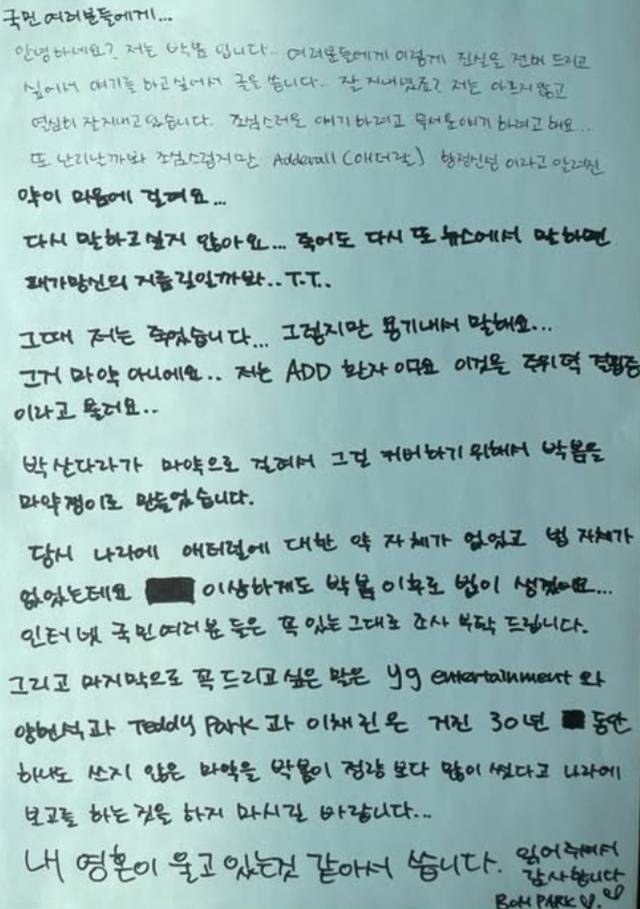 국민 여러분들에게...
안녕하세요? 저는 박봄 입니다.. 여러분들에게 이렇게 진실을 전해 드리고
싶어서 얘기를 하고싶어서 글을 씁니다.. 잘 지내셨죠? 저는 아프지 않고
열심히 잘지내고 있습니다. 조심스러운 얘기 하려고 무서운얘기 하려고 해요...
또 난리날까봐 조심스럽지만 Adderall (애더럴) 향정신성 이라고 알려진
약이 마음에 걸려요...
다시 말하고싶지 않아요... 죽어도 다시 또 뉴스에서 말하면
패가망신의 지름길일까봐..T.T..
그때 저는 죽었습니다... 그렇지만 용기내서 말해요...
그거 마약 아니에요.. 저는 ADD 환자 이구요 이것을 주위력 결핍증
이라고 불러요..
박산다라가 마약으로 걸려서 그걸 커버하기 위해서 박봄을
마약쟁이로 만들었습니다.
당시 나라에 애터럴에 대한 약 자체가 없었고 법 자체가
없었는데요 이상하게도 박봄 이후로 법이 생겼어요...
인터넷 국민여러분 들은 꼭 있는그대로 조사 부탁 드립니다.
그리고 마지막으로 꼭 드리고 싶은 말은 yg entertainment 와
양현석과 Teddy Park 과 이채린은 거진 30년 동안
하나도 쓰지 않은 마약을 박봄이 정량 보다 많이 썼다고 나라에
보고를 하는것을 하지 마시길 바랍니다...
내 영혼이 울고 있는것 같아서 씁니다. 읽어주셔서
감사합니다
BOM PARK ♡.♡